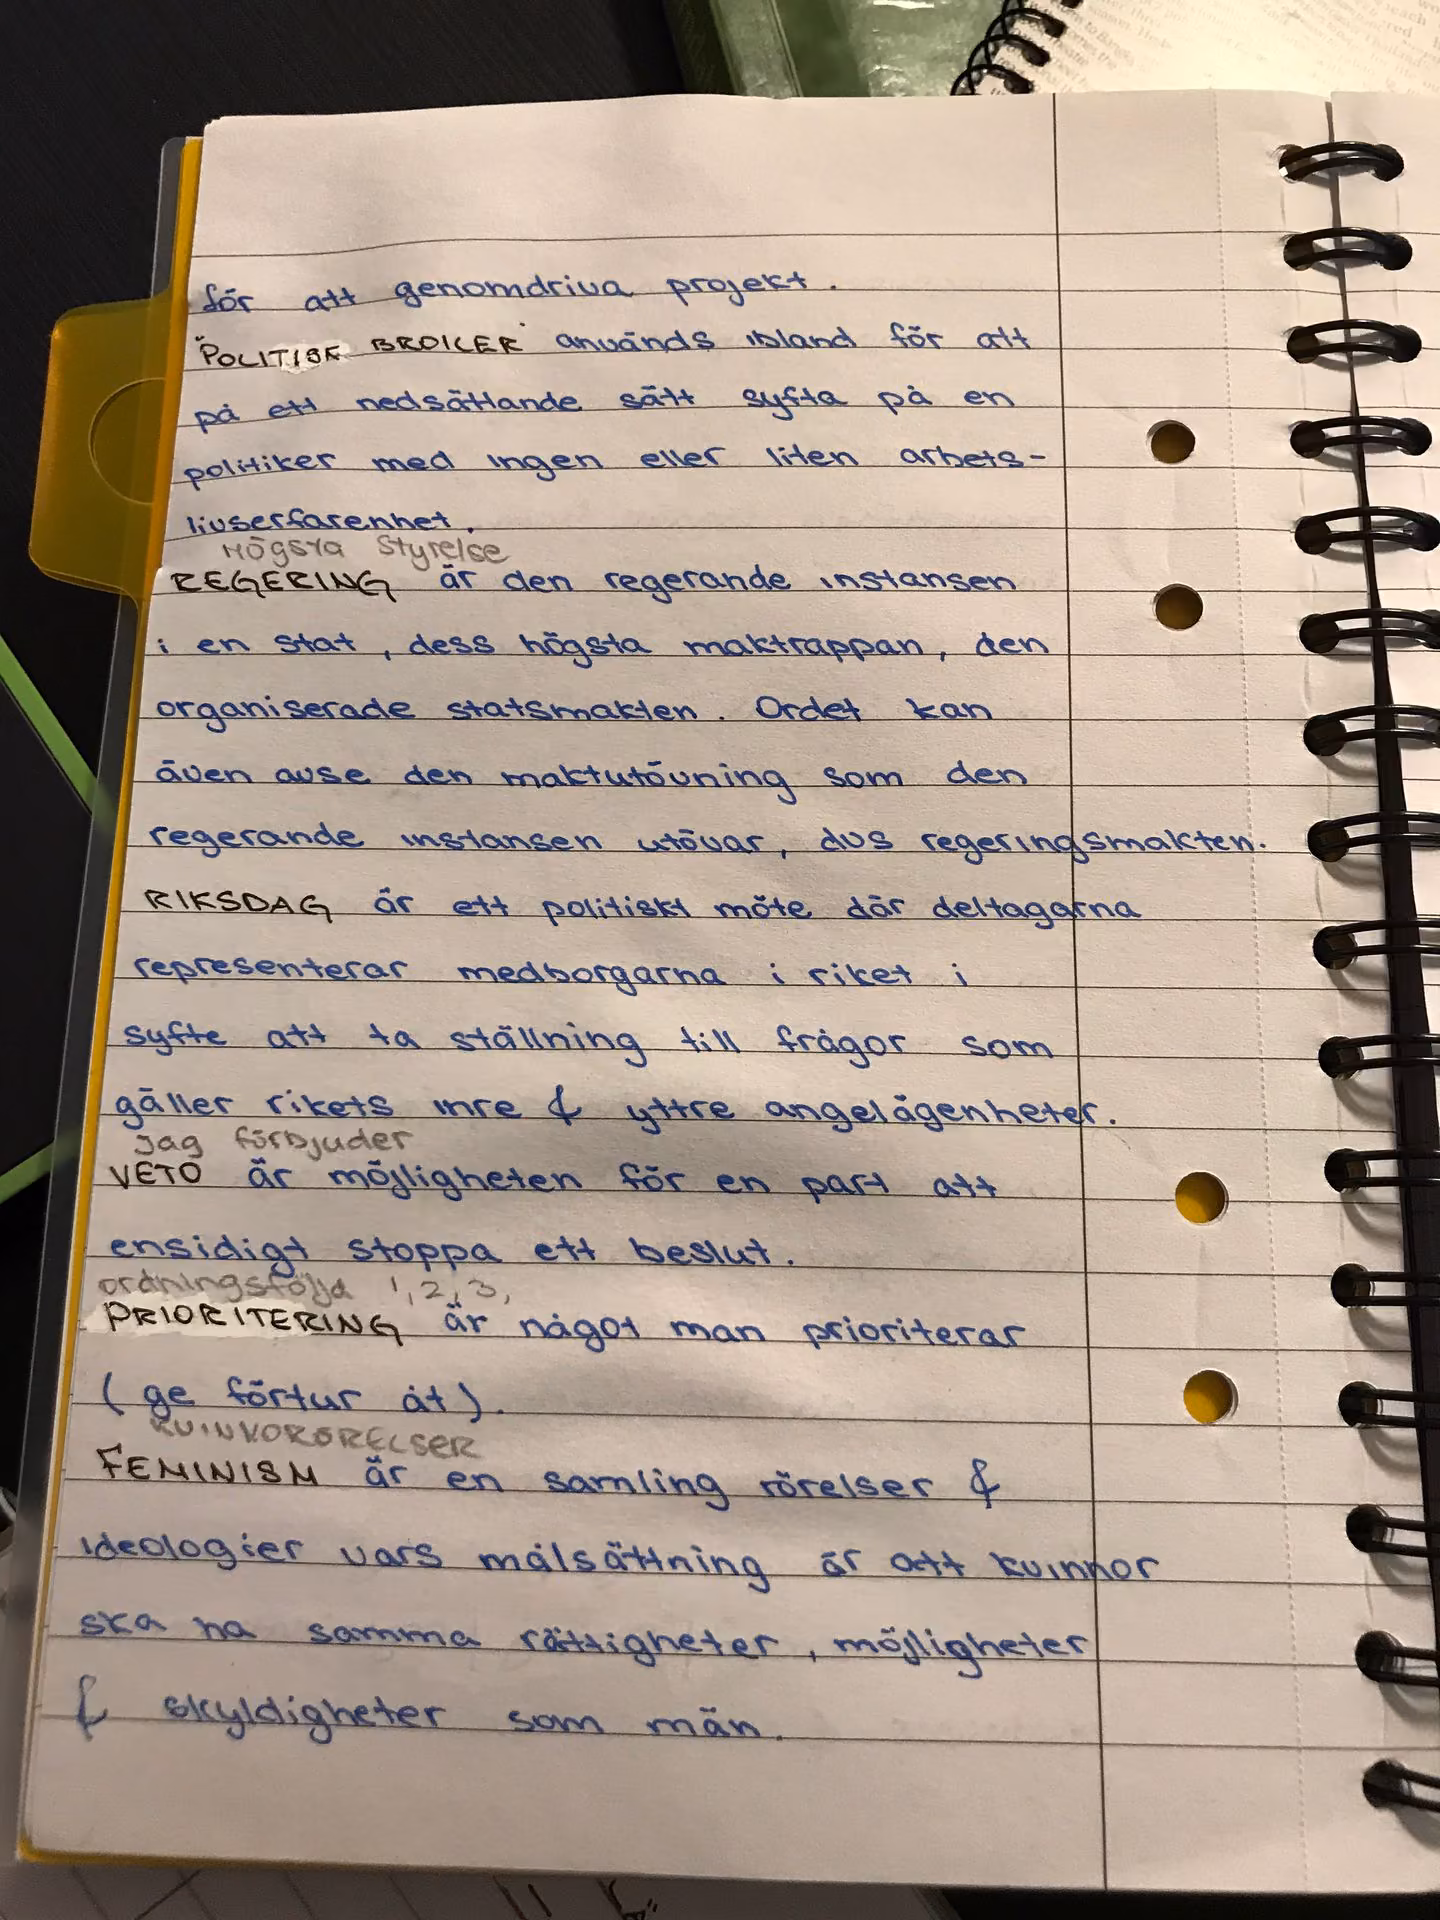 för att genomdriva projekt.
"POLITISK BROILER" används ibland för att
på ett nedsättande sätt syfta på en
politiker med ingen eller liten arbets-
livserfarenhet.
Högsta Styrelse
REGERING är den regerande instansen
i en stat, dess högsta maktrappan, den
organiserade statsmakten. Ordet kan
även avse den maktutövning som den
regerande instansen utövar, dvs regeringsmakten.
RIKSDAG är ett politiskt möte där deltagarna
representerar medborgarna i riket i
syfte att ta ställning till frågor som
gäller rikets inre & yttre angelägenheter.
Jag förbjuder
VETO är möjligheten för en part att
ensidigt stoppa ett beslut.
ordningsföljd 1, 2, 3,
PRIORITERING är något man prioriterar
(ge förtur åt).
KVINNORÖRELSER
FEMINISM är en samling rörelser &
ideologier vars målsättning är att kvinnor
ska ha samma rättigheter, möjligheter
& skyldigheter som män.